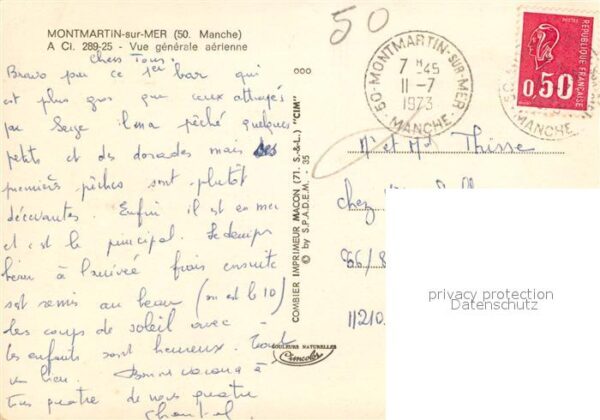 MONTMARTIN-sur-MER (50. Manche)
A Ci. 289-25 - Vue générale aérienne
50
50-MONTMARTIN-SUR-MER
7 H 45
11-7
1973
MANCHE
RÉPUBLIQUE FRANÇAISE
0,50
MANCHE
Chers Tous
Bravo pour ce 1er bar qui
est plus gros que ceux attrapés
par Serge
pêché quelques
petits et des dorades mais les
premières pêches sont plutôt
décevantes. Enfin il est en mer
et c'est le principal. Le temps
beau à l'arrivée frais ensuite
s'est remis au beau (on est le 10)
les coups de soleil avec
les enfants sont heureux. Tout
va bien. Bonne vacances à
tous quatre de nous quatre
Chantal
COMBIER IMPRIMEUR MACON (71. S.-&-L.) "CIM"
© by S.P.A.D.E.M. - 35
COULEURS NATURELLES
Cimcolor
Mr et Md Thisse
chez
66/8
11210
privacy protection
Datenschutz